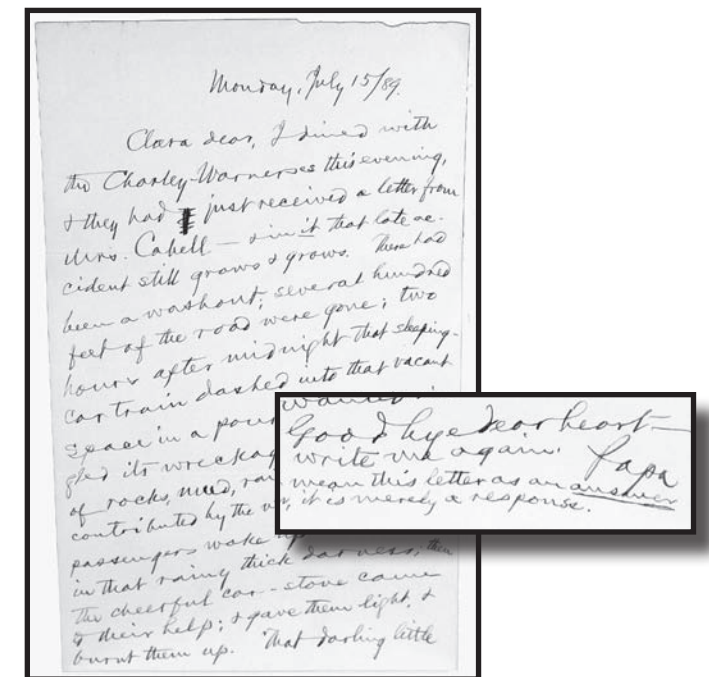 Monday, July 15/89.
Clara dear, I dined with
the Charley Warnerses this evening,
& they had just received a letter from
Mrs. Cabell — & in it that late ac-
cident still grows & grows. There had
been a washout; several hundred
feet of the road were gone; two
hours after midnight that sleeping-
car train dashed into that vacant
space in a pour
gled its wreckag
of rocks, mud, rai
contributed by the
passengers woke up
in that rainy thick darness, then
the cheerful car-stove came
to their help; & gave them light, &
burnt them up. That darling little
Good bye dear heart—
write me again. Papa
mean this letter as an answer
it is merely a response.